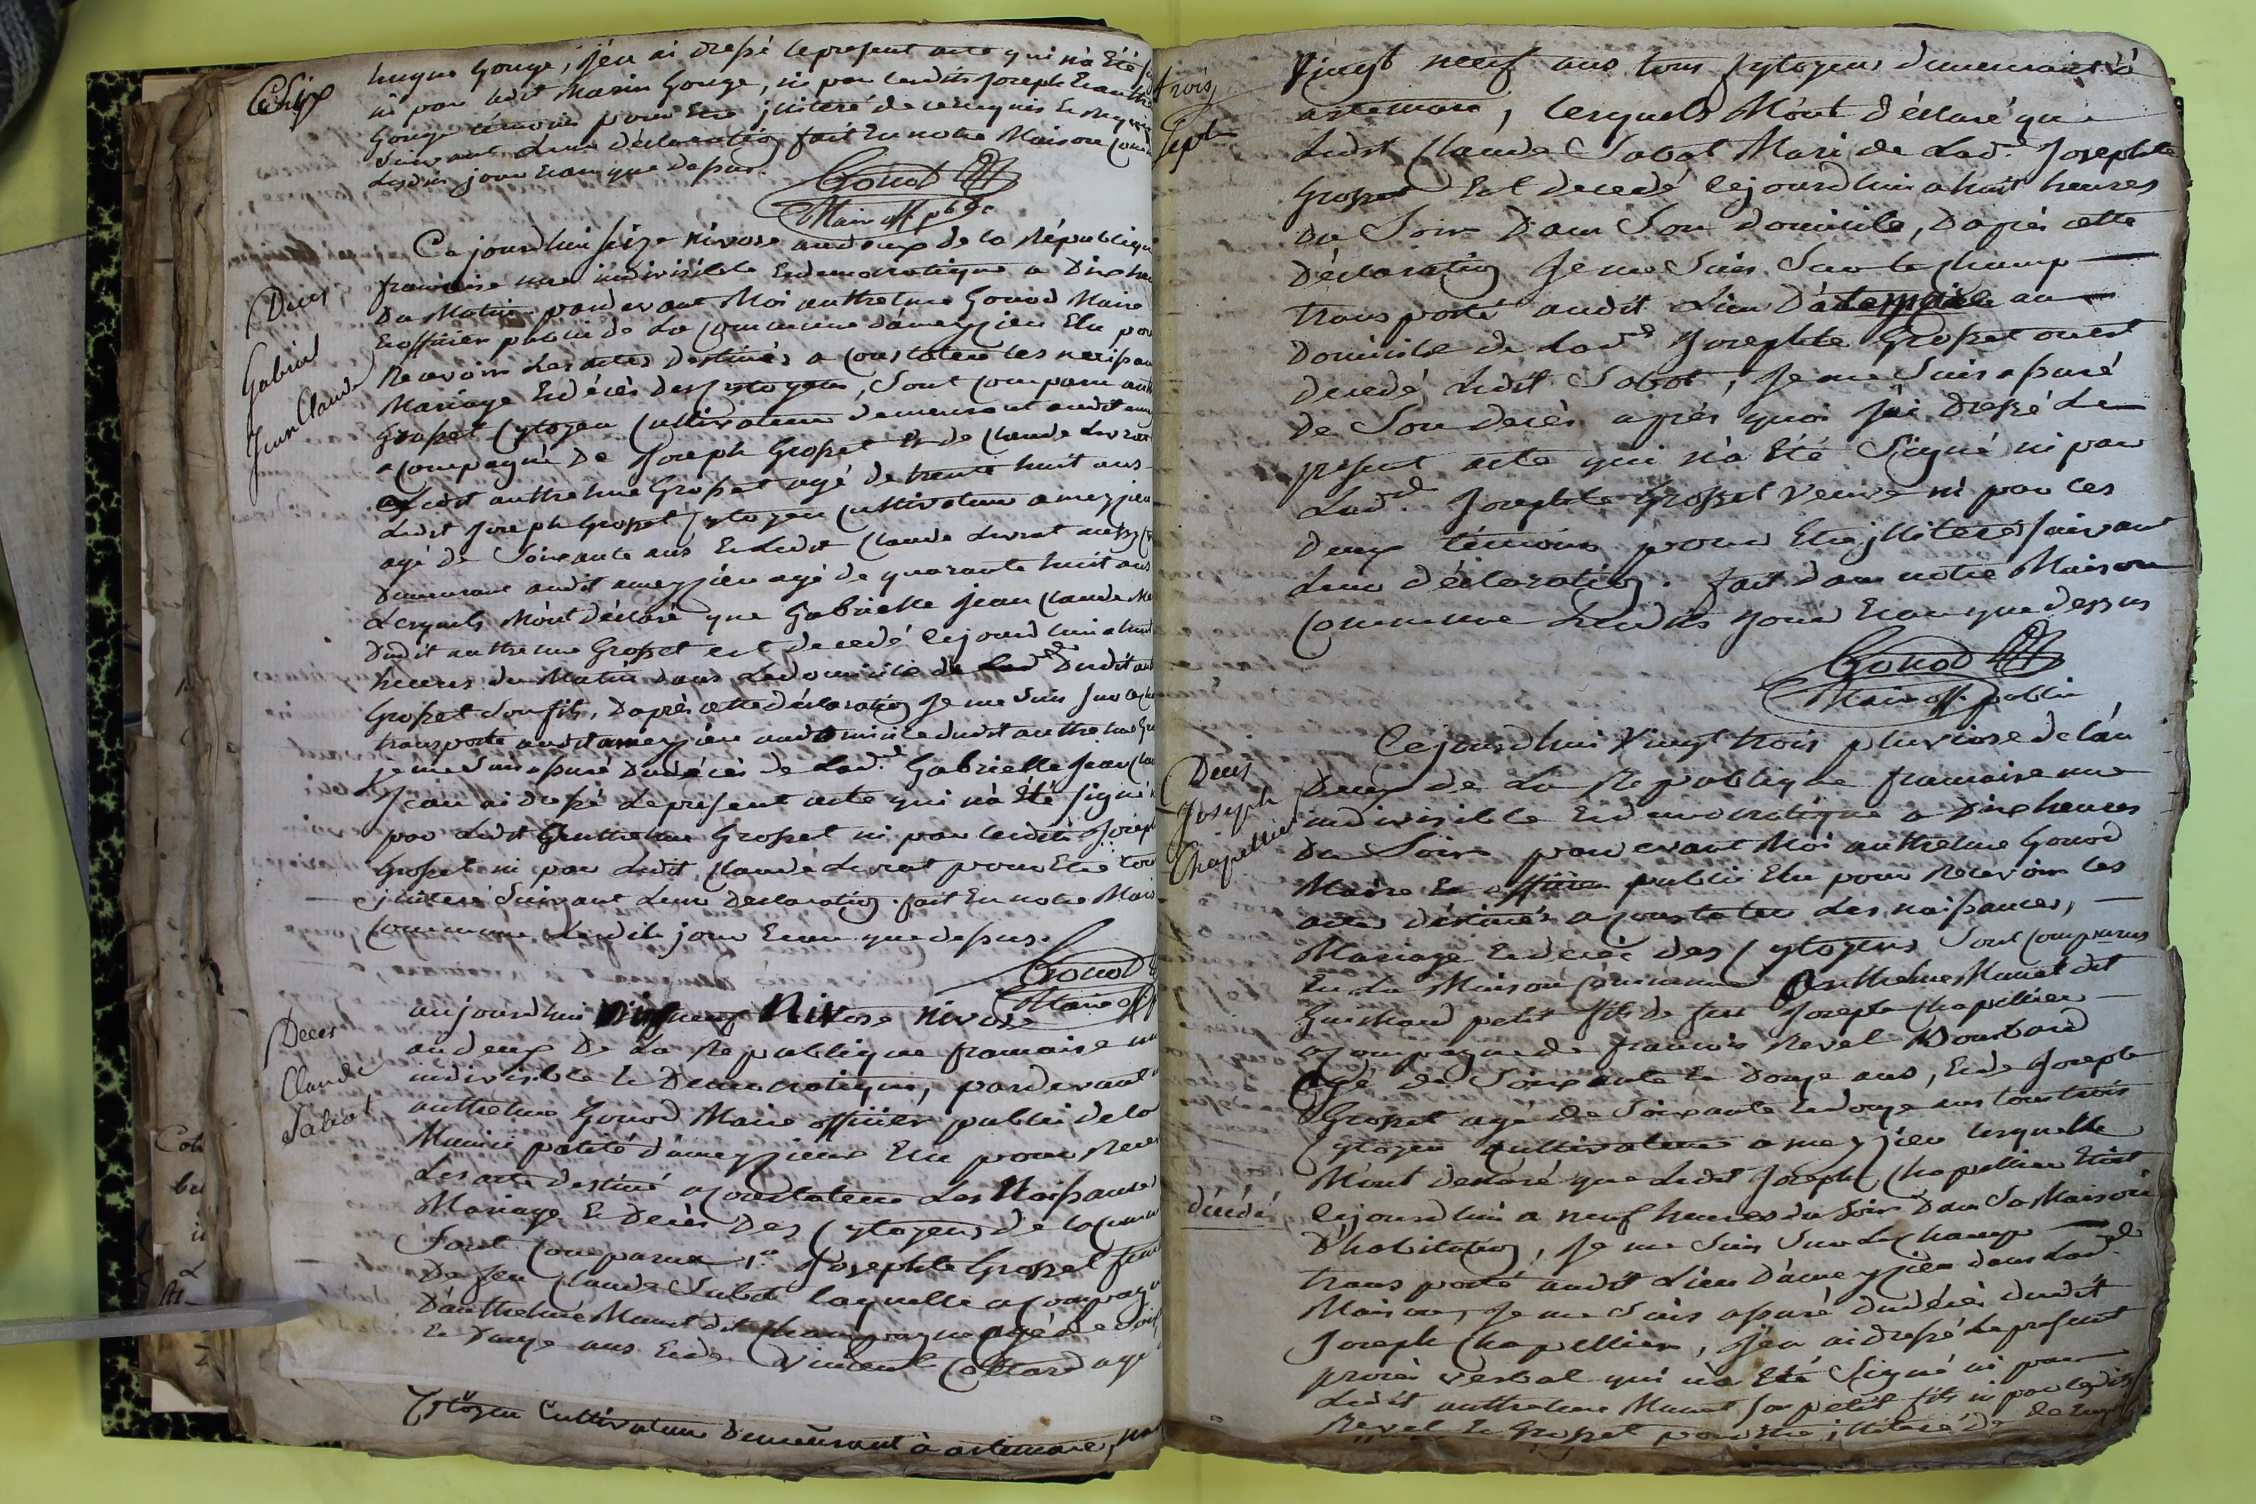 hugue Gouge, j'en ai dressé le present acte qui n'a Été
ni par ledit Marin Gouge, ni par lesdits Joseph Et anthe
Gouge témoins pour Etre illiteré de ce enquis Et requis
Suivant Leur déclaration fait En notre Maison Com
Lesdits jour Et an que dessus.
Gonod
Maire off. pblic
Ce jourdhui seize nivose an deux de la République
francaise une indivisible Et democratique a Dix heu
Du Matin pardevant Moi anthelme Gonod Maire
Et officier public de La Commune d'ameyzieu Elu pour
Recevoir Les actes Destinés a Constater les naissan
Mariage Et décès des Cytoyens, Sont Comparu anth
Grosset Cytoyen Cultivateur demeurant audit amey
acompagné De Joseph Grosset Et de Claude Livrat
Ledit anthelme Grosset agé de trente huit ans
Ledit Joseph Grosset Cytoyen Cultivateur a meyzieu
agé de Soixante ans Et Ledit Claude Livrat aussy
Demeurant audit ameyzieu agé de quarante huit ans
Lesquels M'ont déclaré que Gabrielle Jean Claude
Dudit anthelme Grosset est decedé cejourdhui a huit
heures du Matin dans Le domicile de Dudit an
Grosset Son fils, D'après cette déclaration Je me Suis Sur le
transporté audit ameyzieu au domicile dudit anthelme Gr
je me Suis assuré Du décès de Lad. Gabrielle Jean Cla
J'en ai dressé le present acte qui n'a Été signé
par Ledit anthelme Grosset ni par lesdits Joseph
Grosset ni par Ledit Claude Livrat pour Etre tous
illiteré Suivant Leur Declaration. fait En notre Mais
Commune Lesdits jour Et an que dessus.
Gonod
Maire off
aujourdhui neuf Nivose nivose
an deux De La Republique francaise un
indivisible Et Democratique, pardevant
anthelme Gonod Maire officier public de la
Municipalité d'ameyzieu Elu pour Rece
Les acte destiné a Constater Les Naissances
Mariage Et Décès Des Cytoyens de la Comm
Sont Comparu Josephte Grosset fem
De feu Claude Sabot laquelle acompagné
D'anthelme Munet dit Champagne agé de soix
Et Douze ans Et de Vincent Collard agé
Cytoyen Cultivateur Demeurant à artemare,
Deces
Gabriel
Jean Claude
Deces
Claude
Sabot
trois
Sept
Vingt neuf ans tous Cytoyens demeurant à
artemare, lesquels M'ont déclaré que
Ledit Claude Sabot Mari de Lad. Josephte
Grosset Est decedé cejourdhui a huit heures
Du Soir Dans Son Domicile, D'après cette
Déclaration Je me Suis Sur le champ
transporté audit Lieu au
Domicile de Lad. Josephte Grosset ou est
decedé Ledit Sabot, Je me Suis assuré
de Son Decès après quoi j'ai Dressé Le
present acte qui n'a Été Signé ni par
Lad. Josephte Grosset veuve ni par Les
Deux témoins pour Etre illiteré Suivant
Leur déclaration. fait dans notre Maison
Commune Lesdits jour Et an que dessus
Gonod
Maire off. public
Cejourdhui Vingt trois pluviose de l'an
Deux de La Republique francaise une
indivisible Et democratique a Dix heures
Du Soir pardevant Moi anthelme Gonod
Maire Et officier public Elu pour Recevoir les
actes destinés a Constater Les naissances,
Mariage Et decès des Cytoyens Sont Comparus
En La Maison Commune Anthelme Munet dit
Guichard petit fils de feu Joseph Chapellier
acompagné de francois Revel
Agé de Soixante Et Douze ans, Et de Joseph
Grosset agé de Soixante Et douze ans tous trois
Cytoyen Cultivateur a meyzieu lesquelle
M'ont declaré que Ledit Joseph Chapellier Etoit
décédé
cejourdhui a neuf heures du Soir Dans Sa Maison
D'habitation, Je me Suis Sur Le Champ
transporté audit Lieu D'ameyzieu dans Lad.
Maison, Je me Suis assuré du décès dudit
Joseph Chapellier, J'en ai dressé Le present
procès verbal qui n'a Été Signé ni par
Ledit anthelme Munet Son petit fils ni par lesdits
Revel Et Grosset pour Etre illiteré De
Deces
Joseph
Chapellier